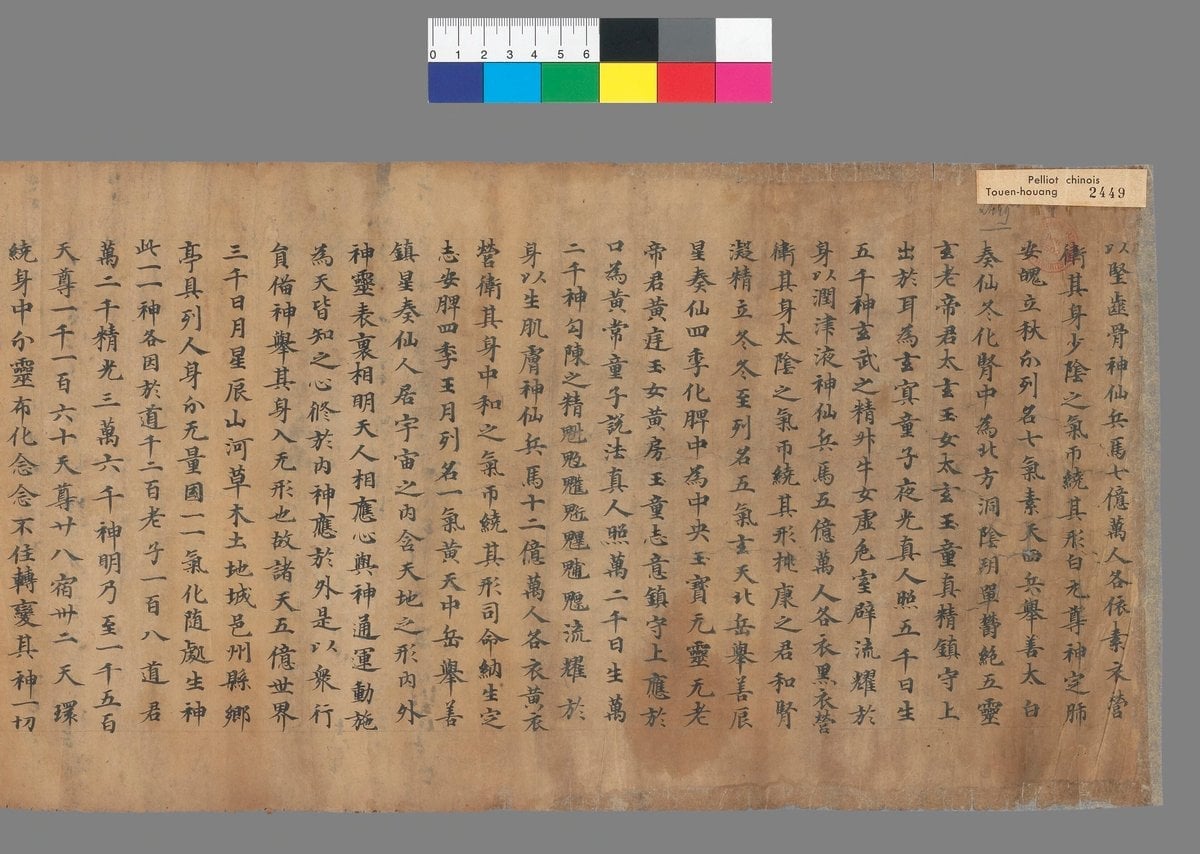 Pelliot chinois
Touen-houang 2449
0 1 2 3 4 5 6
以堅齒骨神仙兵馬七億萬人各依素衣營
衛其身少陰之氣帀繞其形白元尊神定肺
安魄立秋分列名七氣素天西兵舉善太白
奏仙冬化腎中為北方洞陰朔單鬱絕五靈
玄老帝君太玄玉女太玄玉童真精鎮守上
出於耳為玄冥童子夜光真人照五千日生
五千神玄武之精斗牛女虛危室辟流耀於
身以潤津液神仙兵馬五億萬人各衣黑衣營
衛其身太陰之氣帀繞其形桃康之君和腎
凝精立冬冬至列名五氣玄天北岳舉善辰
星奏仙四季化脾中為中央玉寶元靈元老
帝君黃庭玉女黃房玉童志意鎮守上應於
口為黃常童子說法真人照萬二千日生萬
二千神勾陳之精魁䰢流耀於
身以生肌膚神仙兵馬十二億萬人各衣黃衣
營衛其身中和之氣帀繞其形司命納生定
志安脾四季王月列名一氣黃天中岳舉善
鎮星奏仙人居宇宙之內含天地之形內外
神靈表裏相明天人相應心與神通運動施
為天皆知之心修於內神應於外是以眾行
負俻神舉其身入无形也故諸天五億世界
三千日月星辰山河草木土地城邑州縣鄉
亭具列人身分无量國一一氣化随處生神
此一一神各因於道千二百老子一百八道君
萬二千精光三萬六千神明乃至一千五百
天尊一千一百六十天尊廿八宿卅二天環
繞身中分靈布化念念不住轉變其神一切